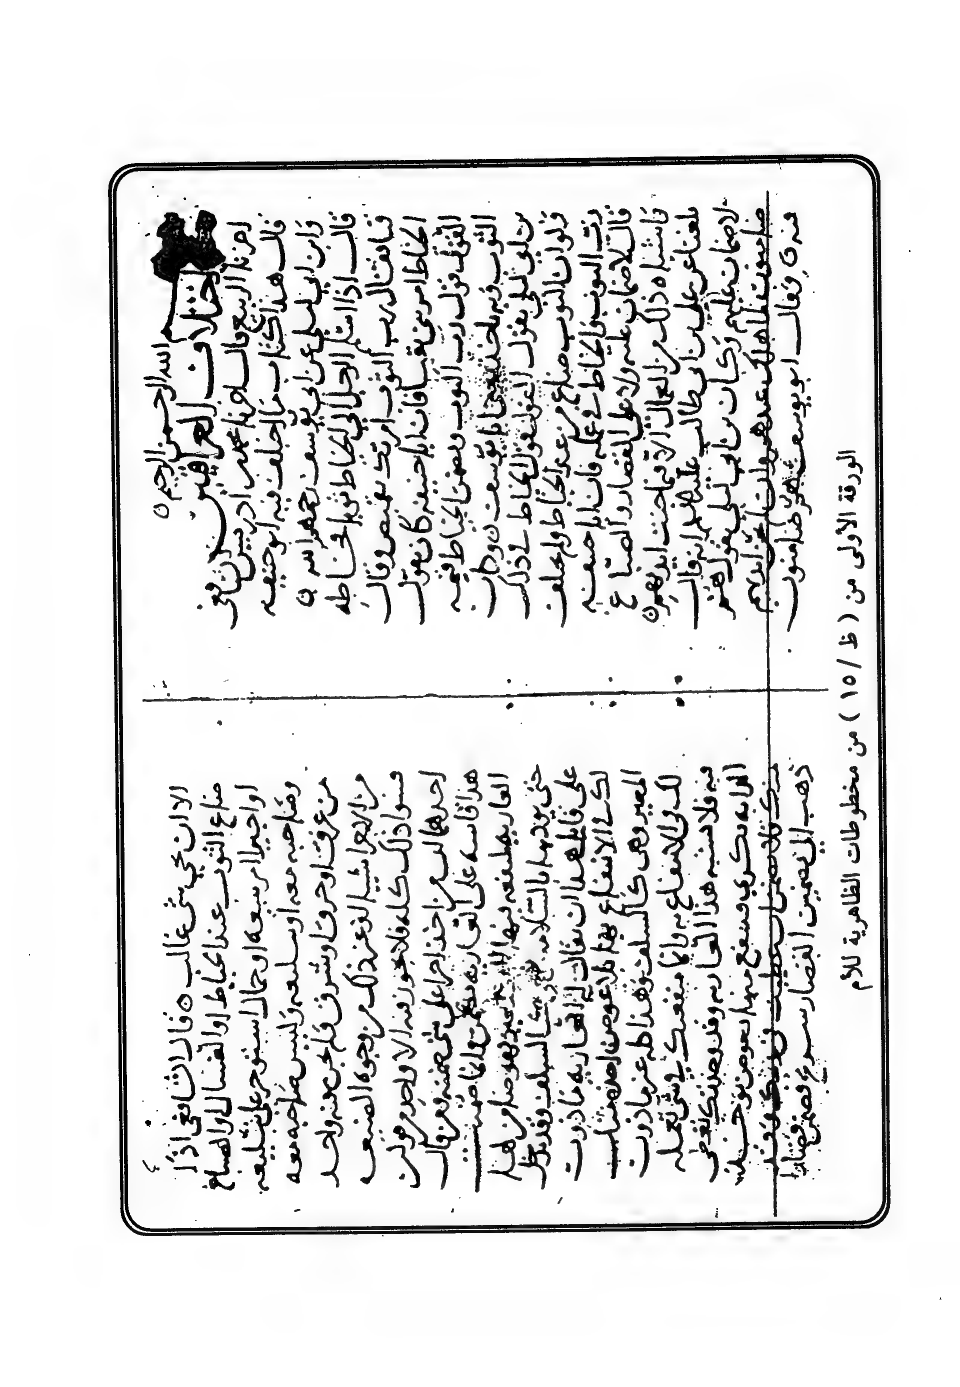 الله الرحمن الرحيم
اختلاف العراقيين
اخبرنا الربيع قال اخبرنا محمد بن ادريس الشافعي
قال هذا كتاب ما اختلف فيه ابو حنيفه
وابن ابي ليلى عن ابي يوسف رحمهم الله
قال اذا اسلم الرجل الى الخياط ثوبا فخاطه
قبا فقال رب الثوب امرتك بقميص وقال
الخياط امرتني بقبا فان ابا حنيفه كان يقول
القول قول رب الثوب ويضمن الخياط قيمه
الثوب وبه ناخذ يعني ابا يوسف وكان
بن ابي ليلى يقول القول قول الخياط في ذلك
ولو ان الثوب ضاع من عند الخياط ولم يختلف
رب الثوب والخياط في عمله فان ابا حنيفه
قال لا ضمان عليه ولا على القصار والصباغ
وما اشبه ذلك من العمال الا فيما جنت ايديهم
بلغنا عن علي بن ابي طالب عليه السلام انه قال
لا ضمان عليهم وكان بن ابي ليلى يقول هم
ضامنون لما هلك عندهم وان لم تجن ايديهم
فيه وقال ابو يوسف هم ضامنون
الا ان يجي شي غالب قال الشافعي اذا
ضاع الثوب عند الخياط او الغسال او الصباغ
او اجير امر ببيعه او حمال استوجر على تبليغه
وصاحبه معه او تبليغه وليس صاحبه معه
من غرق او حرق او سرق فلم يجن فيه واحد
من الاجرا شيا او غير ذلك من وجوه الضيعه
فسوا ذلك كله فلا يجوز فيه الا واحد من قولين
احدهما ان من اخذ اجرا على شي ضمنه ومن قال
هذا قاسه على العاريه تضمن وانما ضمنت
العاريه لمنفعه فيها للمستعير فهو ضامن لها
حتى يوديها بالسلامه وهي كالسلف وقد يدخل
على قايل هذا ان يقال له ان العاريه ماذون
لك في الانتفاع بها بلا عوض اخذه منك
المعير وهي كالسلف وهذا كله غير ماذون
لك في الانتفاع به وانما منفعتك في شي تعمله
فيه فلا يشبه هذا العاريه وقد وجدتك تعطي
الدابه بكري فتنتفع منها بعوض يوخذ
منك فلا تضمن ان عطبت في يديك وقد
ذهب الى تضمين القصار شريح فضمن قصارا
الورقة الأولى من ( ظ / ١٥ ) من مخطوطات الظاهرية للأم